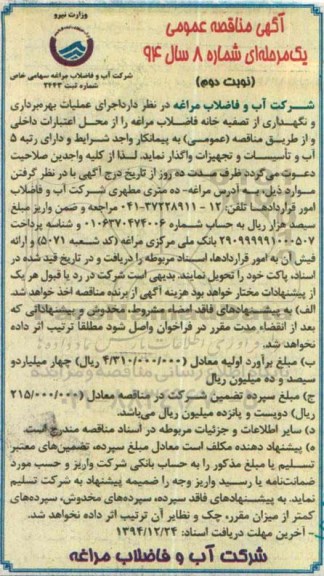 آگهی مناقصه عمومی
یک‌مرحله‌ای شماره ۸ سال ۹۴
(نوبت دوم)
وزارت نیرو
شرکت آب و فاضلاب مراغه سهامی خاص
شماره ثبت ۲۴۴۳
شرکت آب و فاضلاب مراغه در نظر دارداجرای عملیات بهره‌برداری
و نگهداری از تصفیه خانه فاضلاب مراغه را از محل اعتبارات داخلی
و از طریق مناقصه (عمومی) به پیمانکار واجد شرایط و دارای رتبه ۵
آب و تأسیسات و تجهیزات واگذار نماید. لذا از کلیه واجدین صلاحیت
دعوت می‌گردد ظرف مدت ده روز از تاریخ درج آگهی با در نظر گرفتن
موارد ذیل به آدرس مراغه- ده متری مطهری شرکت آب و فاضلاب
امور قراردادها تلفن: ۱۲ - ۳۷۲۲۸۹۱۱-۰۴۱ مراجعه و ضمن واریز مبلغ
سیصد هزار ریال به حساب شماره ۰۱۰۶۳۷۰۴۷۴۰۰۶ و شناسه پرداخت
۲۹۰۹۹۹۹۹۱۰۰۰۵۰۷ بانک ملی مرکزی مراغه (کد شعبه ۵۰۷۱) و ارائه
فیش آن به امور قراردادها، اسناد مربوطه را دریافت و در تاریخ قید شده در
اسناد، پاکت خود را تحویل نمایند. بدیهی است شرکت در رد یا قبول هر یک
از پیشنهادات مختار خواهد بود هزینه آگهی از برنده مناقصه اخذ خواهد شد.
الف) به پیشنهادهای فاقد امضاء مشروط، مخدوش و پیشنهاداتی که
بعد از انقضاء مدت مقرر در فراخوان واصل شود مطلقا ترتیب اثر داده
نخواهد شد.
ب) مبلغ برآورد اولیه معادل (۴/۳۱۰/۰۰۰/۰۰۰ ریال) چهار میلیاردو
سیصد و ده میلیون ریال
ج) مبلغ سپرده تضمین شرکت در مناقصه معادل (۲۱۵/۰۰۰/۰۰۰
ریال) دویست و پانزده میلیون ریال می‌باشد.
د) سایر اطلاعات و جزئیات مربوطه در اسناد مناقصه مندرج است
ه) پیشنهاد دهنده مکلف است معادل مبلغ سپرده، تضمین‌های معتبر
تسلیم یا مبلغ مذکور را به حساب بانکی شرکت واریز و حسب مورد
ضمانت‌نامه یا رسید واریز وجه را ضمیمه پیشنهاد به شرکت تسلیم
نماید. به پیشنهادهای فاقد سپرده، سپرده‌های مخدوش، سپرده‌های
کمتر از میزان مقرر، چک و نظایر آن ترتیب اثر داده نخواهد شد.
- آخرین مهلت دریافت اسناد: ۱۳۹۴/۱۲/۲۴
شرکت آب و فاضلاب مراغه